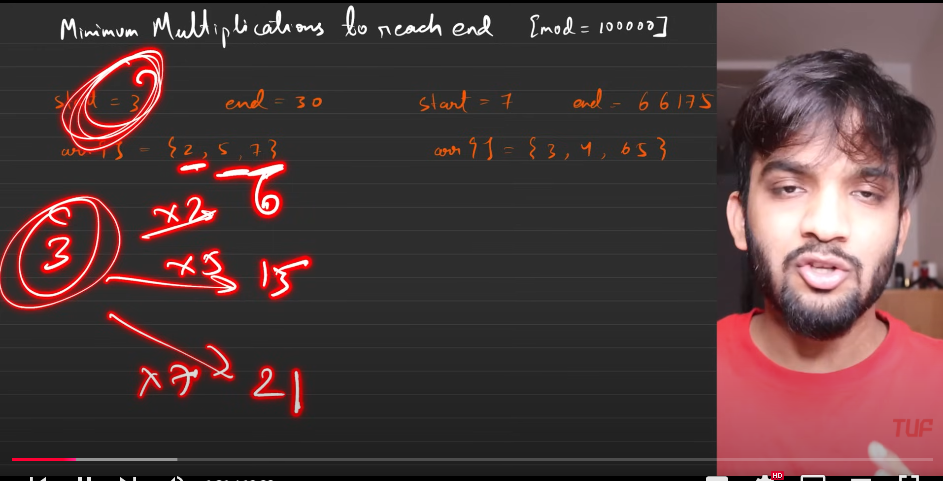 Minimum Multiplications to reach end [mod = 100000]
start = 3 end = 30 start = 7 end = 66175
arr[] = {2, 5, 7} arr[] = {3, 4, 65}
6
×2
3
×5 15
×7 21
TUF
HD